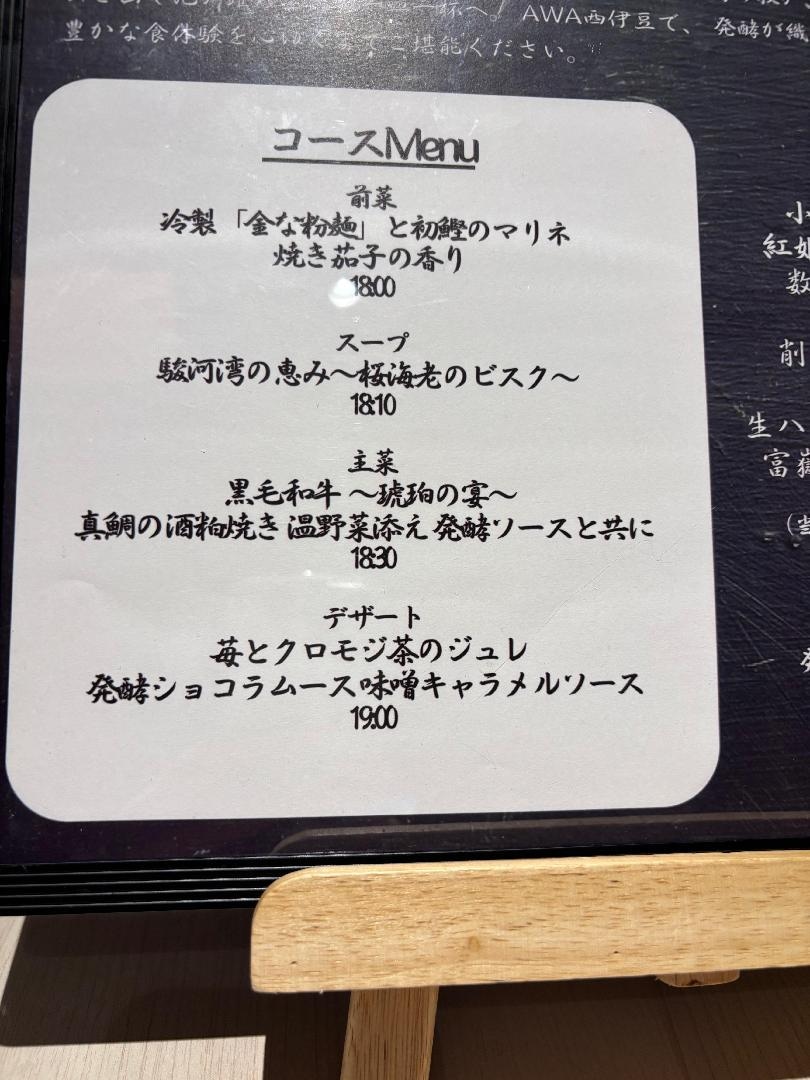 一杯へ! AWA西伊豆で、 発酵が織
豊かな食体験を 堪能ください。
コースMenu
前菜
冷製「金な粉麺」と初鰹のマリネ
焼き茄子の香り
18:00
スープ
駿河湾の恵み～桜海老のビスク～
18:10
主菜
黒毛和牛 ～琥珀の宴～
真鯛の酒粕焼き 温野菜添え 発酵ソースと共に
18:30
デザート
苺とクロモジ茶のジュレ
発酵ショコラムース味噌キャラメルソース
19:00
小
紅
数
削
生ハ
富嶽